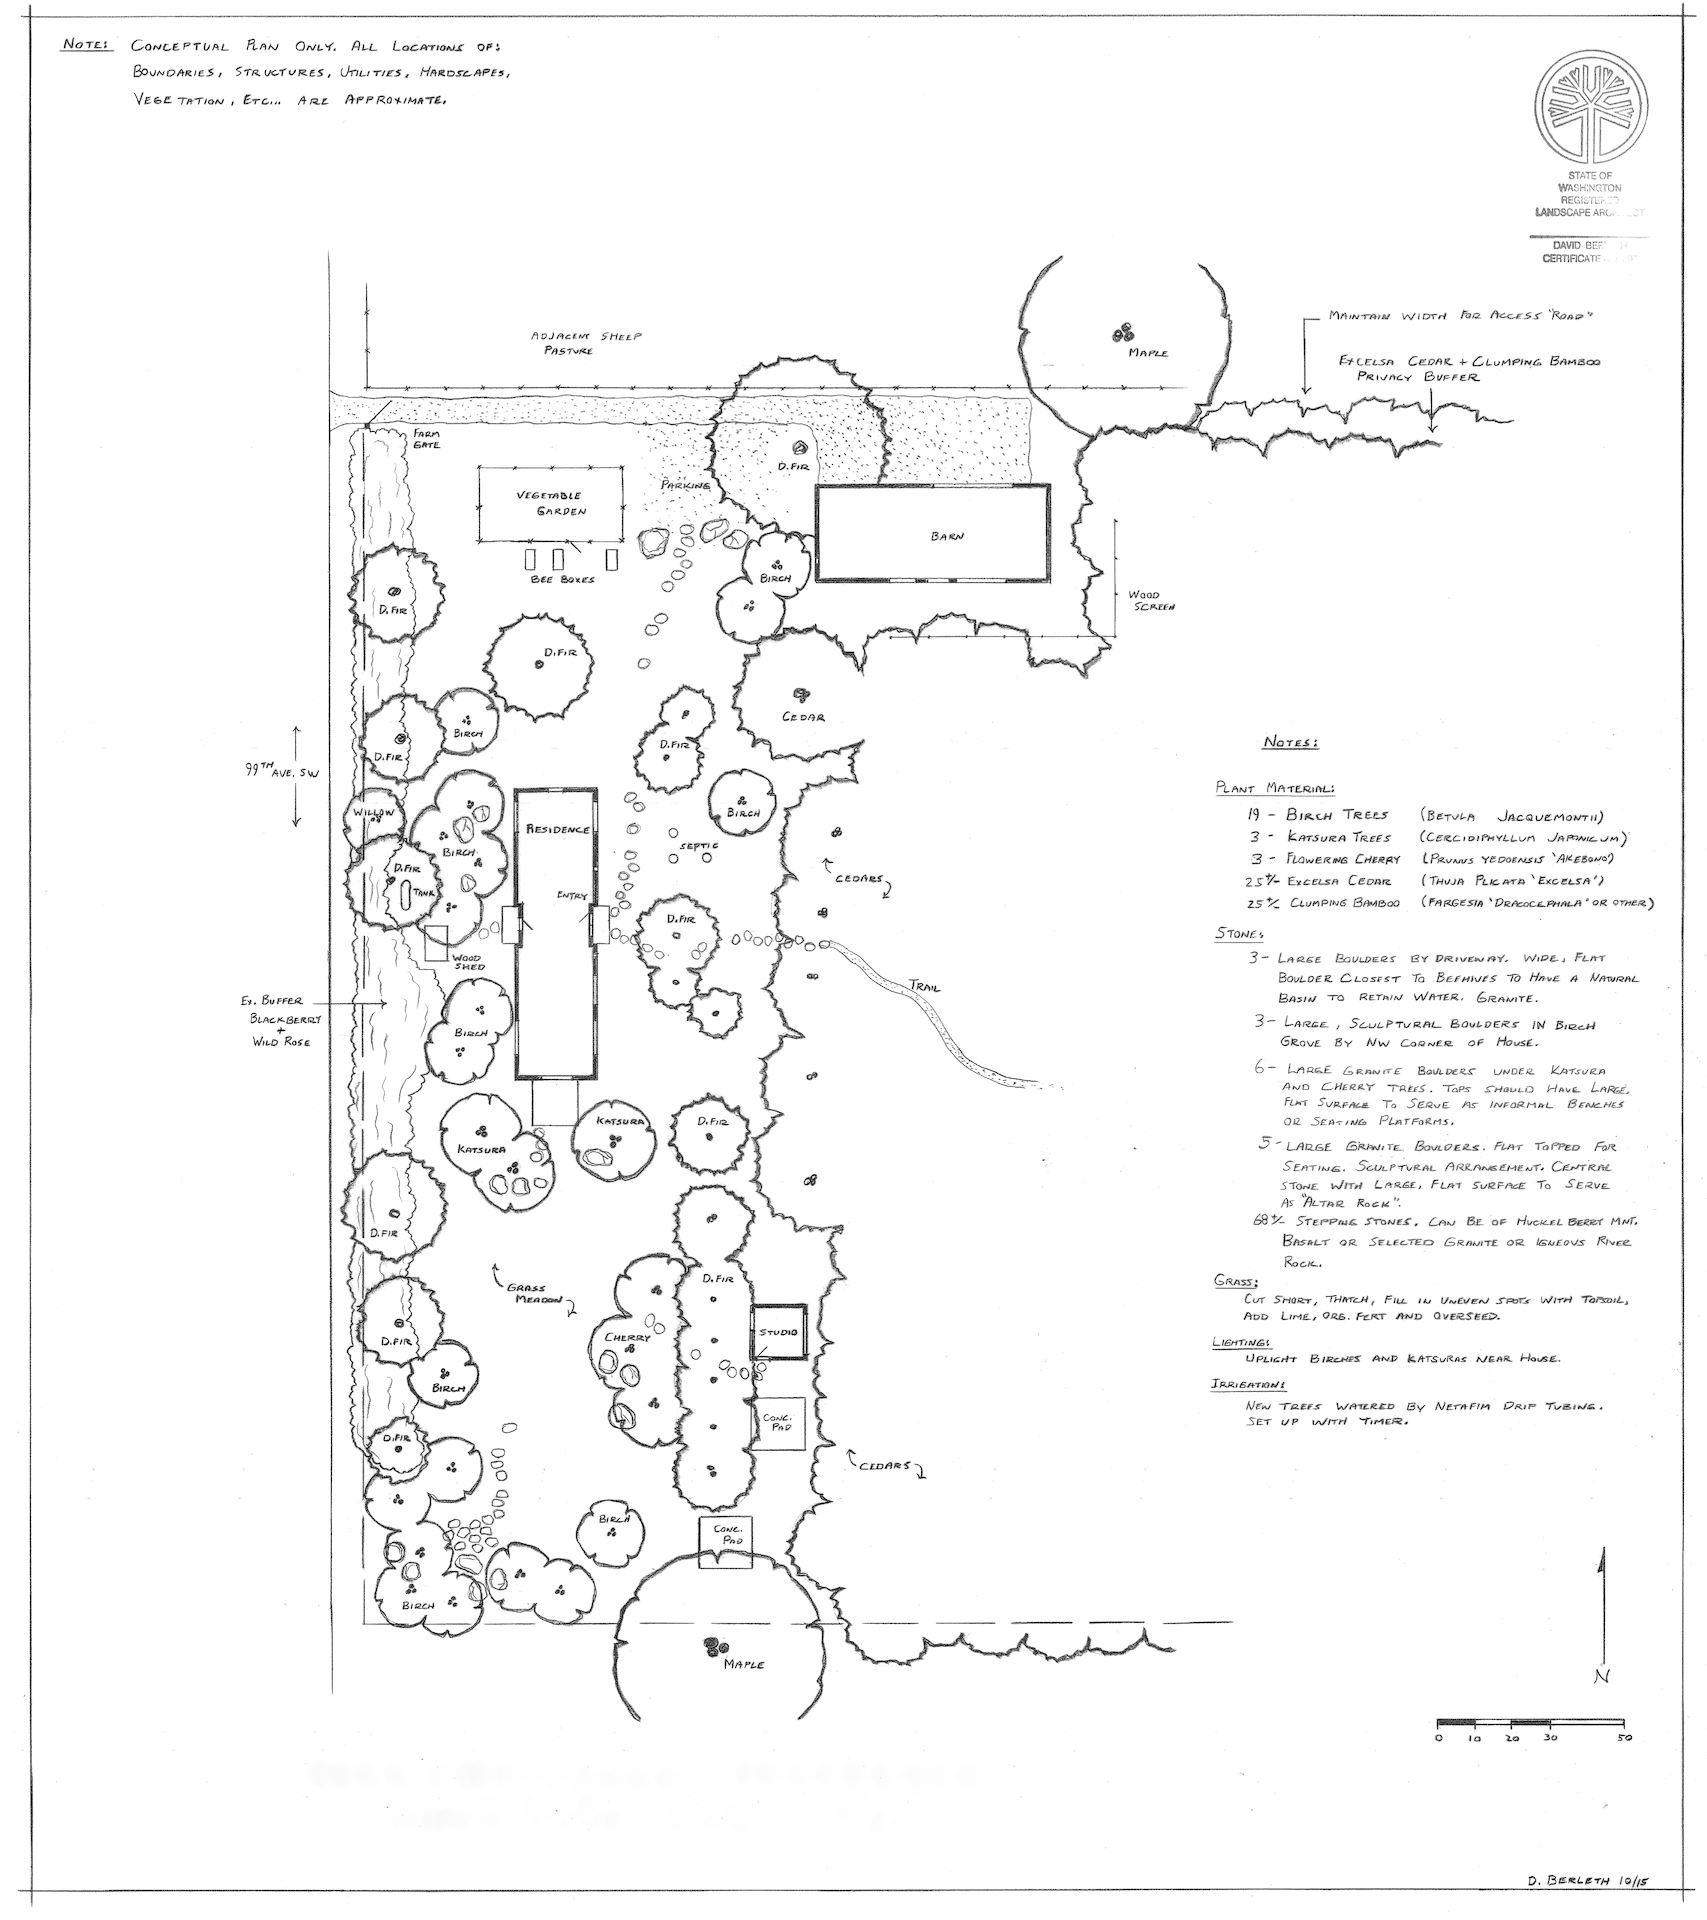 NOTE: CONCEPTUAL PLAN ONLY. ALL LOCATIONS OF:
BOUNDARIES, STRUCTURES, UTILITIES, HARDSCAPES,
VEGETATION, ETC... ARE APPROXIMATE.
STATE OF
WASHINGTON
LANDSCAPE
DAVID
CERTIFICATE
MAINTAIN WIDTH FOR ACCESS "ROAD"
ADJACENT SHEEP
PASTURE
MAPLE
EXCELSA CEDAR + CLUMPING BAMBOO
PRIVACY BUFFER
FARM
GATE
D.FIR
PARKING
VEGETABLE
GARDEN
BARN
BEE BOXES
BIRCH
WOOD
SCREEN
D.FIR
D.FIR
CEDAR
BIRCH
D.FIR
D.FIR
99TH AVE. SW
WILLOW
BIRCH
RESIDENCE
SEPTIC
BIRCH
D.FIR
TANK
ENTRY
CEDARS
D.FIR
WOOD
SHED
TRAIL
EX. BUFFER
BLACKBERRY
+
WILD ROSE
BIRCH
KATSURA
KATSURA
D.FIR
D.FIR
GRASS
MEADOW
D.FIR
D.FIR
CHERRY
STUDIO
BIRCH
CONC.
PAD
D.FIR
CEDARS
BIRCH
CONC.
PAD
BIRCH
MAPLE
NOTES:
PLANT MATERIAL:
19 - BIRCH TREES (BETULA JACQUEMONTII)
3 - KATSURA TREES (CERCIDIPHYLLUM JAPONICUM)
3 - FLOWERING CHERRY (PRUNUS YEDOENSIS 'AKEBONO')
25+/- EXCELSA CEDAR (THUJA PLICATA 'EXCELSA')
25+/- CLUMPING BAMBOO (FARGESIA 'DRACOCEPHALA' OR OTHER)
STONE:
3 - LARGE BOULDERS BY DRIVEWAY. WIDE, FLAT
BOULDER CLOSEST TO BEEHIVES TO HAVE A NATURAL
BASIN TO RETAIN WATER. GRANITE.
3 - LARGE, SCULPTURAL BOULDERS IN BIRCH
GROVE BY NW CORNER OF HOUSE.
6 - LARGE GRANITE BOULDERS UNDER KATSURA
AND CHERRY TREES. TOPS SHOULD HAVE LARGE,
FLAT SURFACE TO SERVE AS INFORMAL BENCHES
OR SEATING PLATFORMS.
5 - LARGE GRANITE BOULDERS. FLAT TOPPED FOR
SEATING. SCULPTURAL ARRANGEMENT. CENTRAL
STONE WITH LARGE, FLAT SURFACE TO SERVE
AS "ALTAR ROCK".
68+/- STEPPING STONES. CAN BE OF HUCKELBERRY MNT.
BASALT OR SELECTED GRANITE OR IGNEOUS RIVER
ROCK.
GRASS:
CUT SHORT, THATCH, FILL IN UNEVEN SPOTS WITH TOPSOIL,
ADD LIME, ORG. FERT AND OVERSEED.
LIGHTING:
UPLIGHT BIRCHES AND KATSURAS NEAR HOUSE.
IRRIGATION:
NEW TREES WATERED BY NETAFIM DRIP TUBING.
SET UP WITH TIMER.
N
0 10 20 30 50
D. BERLETH 10/15